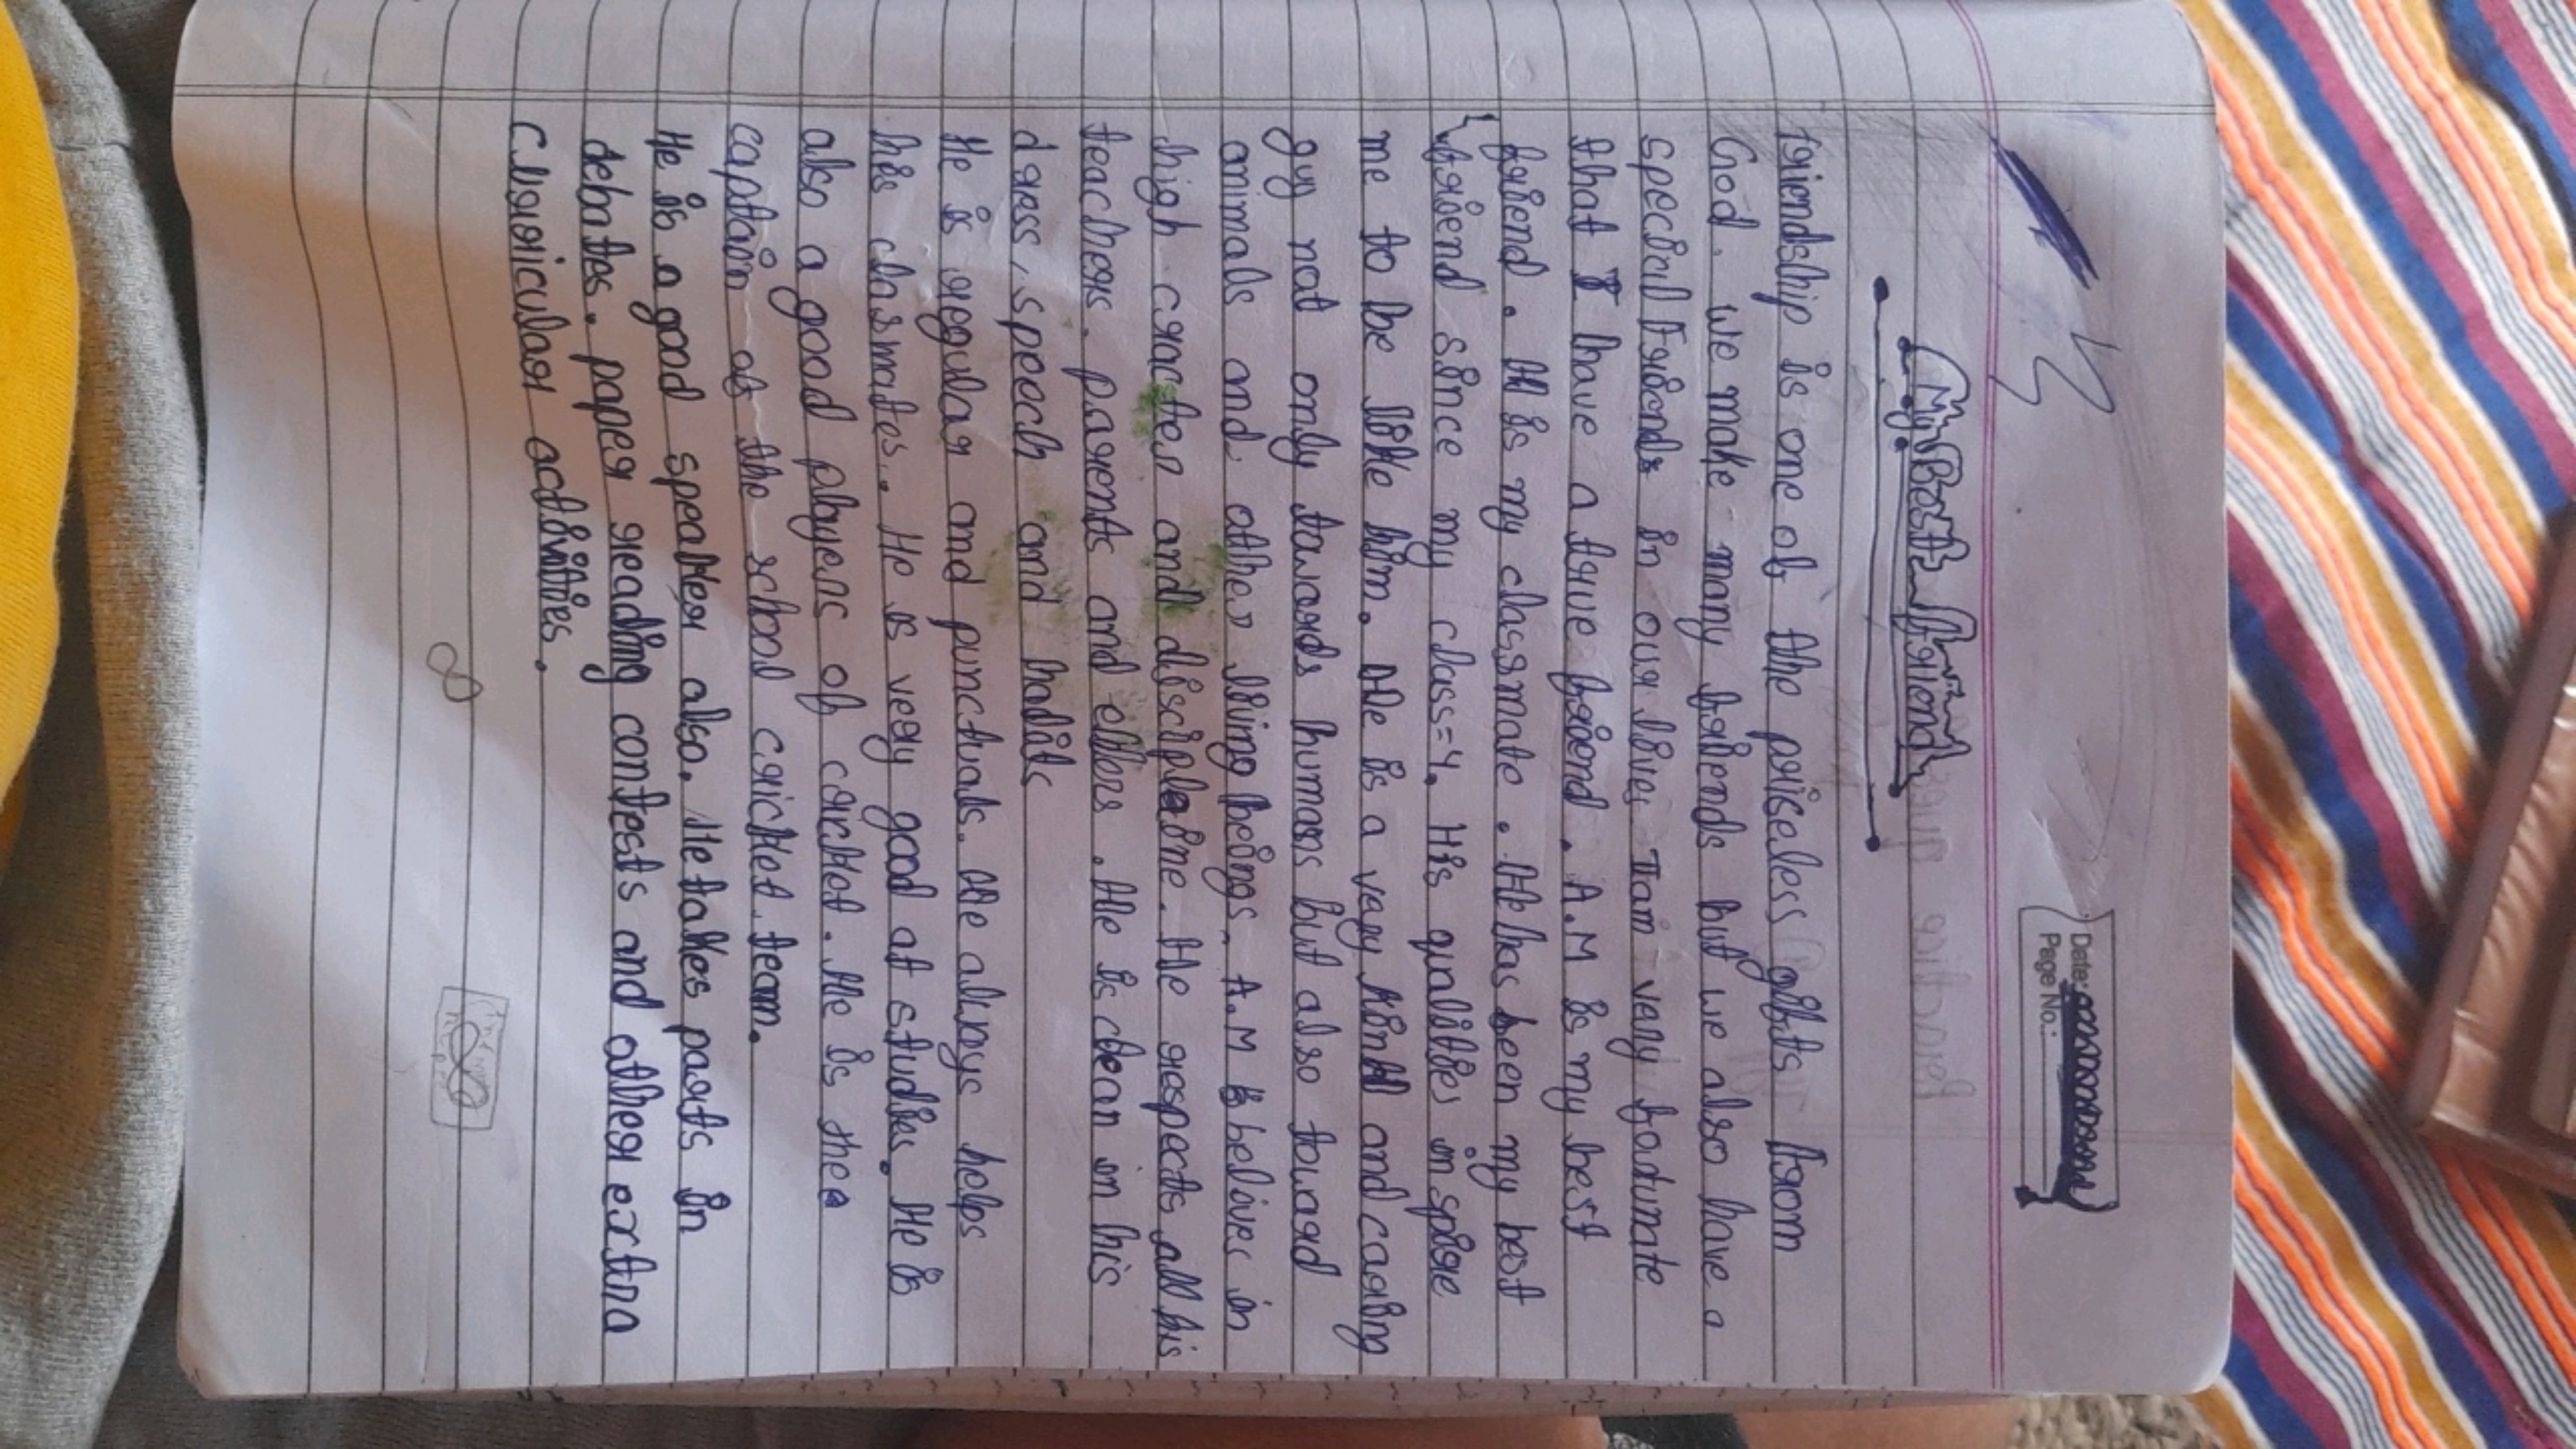 Date:
Page No.:
My Best Friend
Friendship is one of the priseless gifts from
God. we make many friends but we also have a
special Friends in our lives I am very fortunate
that I have a true friend. A.M is my best
friend. He is my classmate. He has been my best
friend since my class=4. His qualities inspire
me to be like him. He is a very kind and caring
guy not only towards humans but also toward
animals and other living beings. A.M belives in
high cracter and discipleine. He respects all his
teachers. parents and elders. He is clean in his
dress, speech and habits
He is regular and punctuals. He always helps
his classmates.. He is very good at studies. He is
also a good players of cricket. He is the
captain of the school cricket team.
He is a good speaker also. He takes parts in
debates. paper reading contests and other extra
curricular activities.